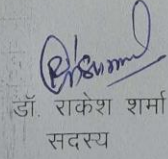 डॉ. राकेश शर्मा
सदस्य